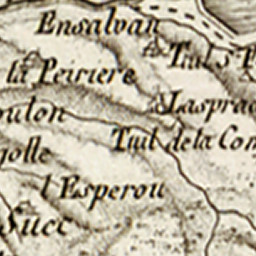 Ensalvan
Tuil S
la Peiriere
Laspra
oulon
Tuil de la Com
olle
l'Esperou
Succ